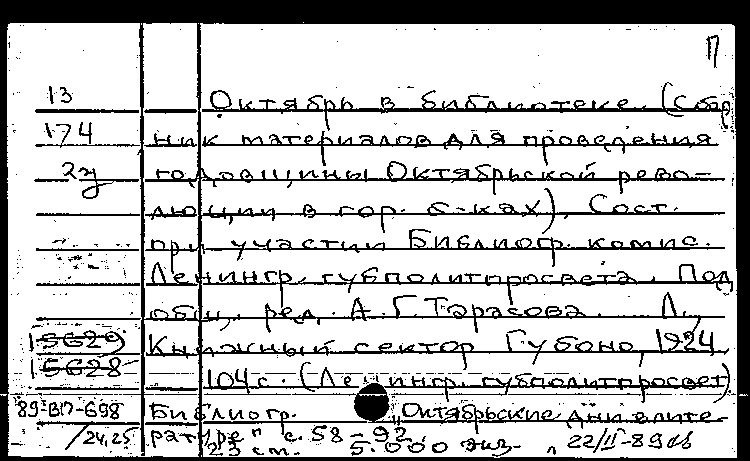 П
13 Октябрь в библиотеке. (Сбор
174 ник материалов для проведения
2з годовщины Октябрьской рево-
люции в гор. б-ках). Сост.
при участии Библиогр. комис.
Ленингр. губполитпросвета. Под
общ. ред. А. Г. Тарасова. Л.,
15629 Книжный сектор Губоно, 1924
15628 104 с. (Ленингр. губполитпросвет)
89-ВП-698 Библиогр. "Октябрьские дни в лите-
/24,25 ратуре" с. 58-92.
23 см. 5.000 экз. 22/II-89